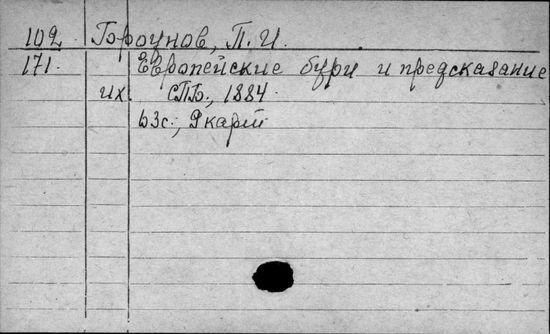 102. Бороунов, П. И.
171. Европейские бури и предсказание
их. СПб., 1884.
63с., 9 карт